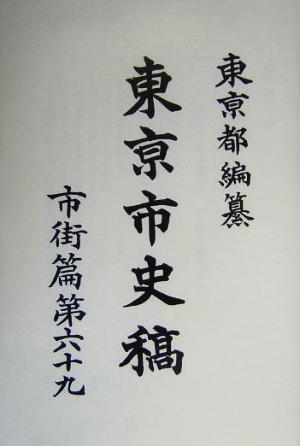 東京都編纂
東京市史稿
市街篇第六十九